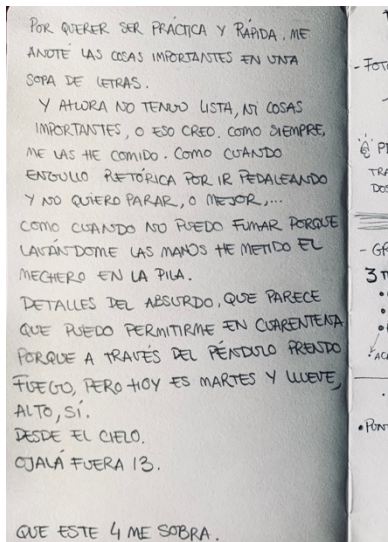 POR QUERER SER PRÁCTICA Y RÁPIDA. ME
ANOTÉ LAS COSAS IMPORTANTES EN UNA
SOPA DE LETRAS.
Y AHORA NO TENGO LISTA, NI COSAS
IMPORTANTES, O ESO CREO. COMO SIEMPRE,
ME LAS HE COMIDO. COMO CUANDO
ENGULLO RETÓRICA POR IR PEDALEANDO
Y NO QUIERO PARAR, O MEJOR,...
COMO CUANDO NO PUEDO FUMAR PORQUE
LAVÁNDOME LAS MANOS HE METIDO EL
MECHERO EN LA PILA.
DETALLES DEL ABSURDO, QUE PARECE
QUE PUEDO PERMITIRME EN CUARENTENA
PORQUE A TRAVÉS DEL PÉNDULO PRENDO
FUEGO, PERO HOY ES MARTES Y LLUEVE,
ALTO, SÍ.
DESDE EL CIELO.
OJALÁ FUERA 13.
QUE ESTE 4 ME SOBRA.